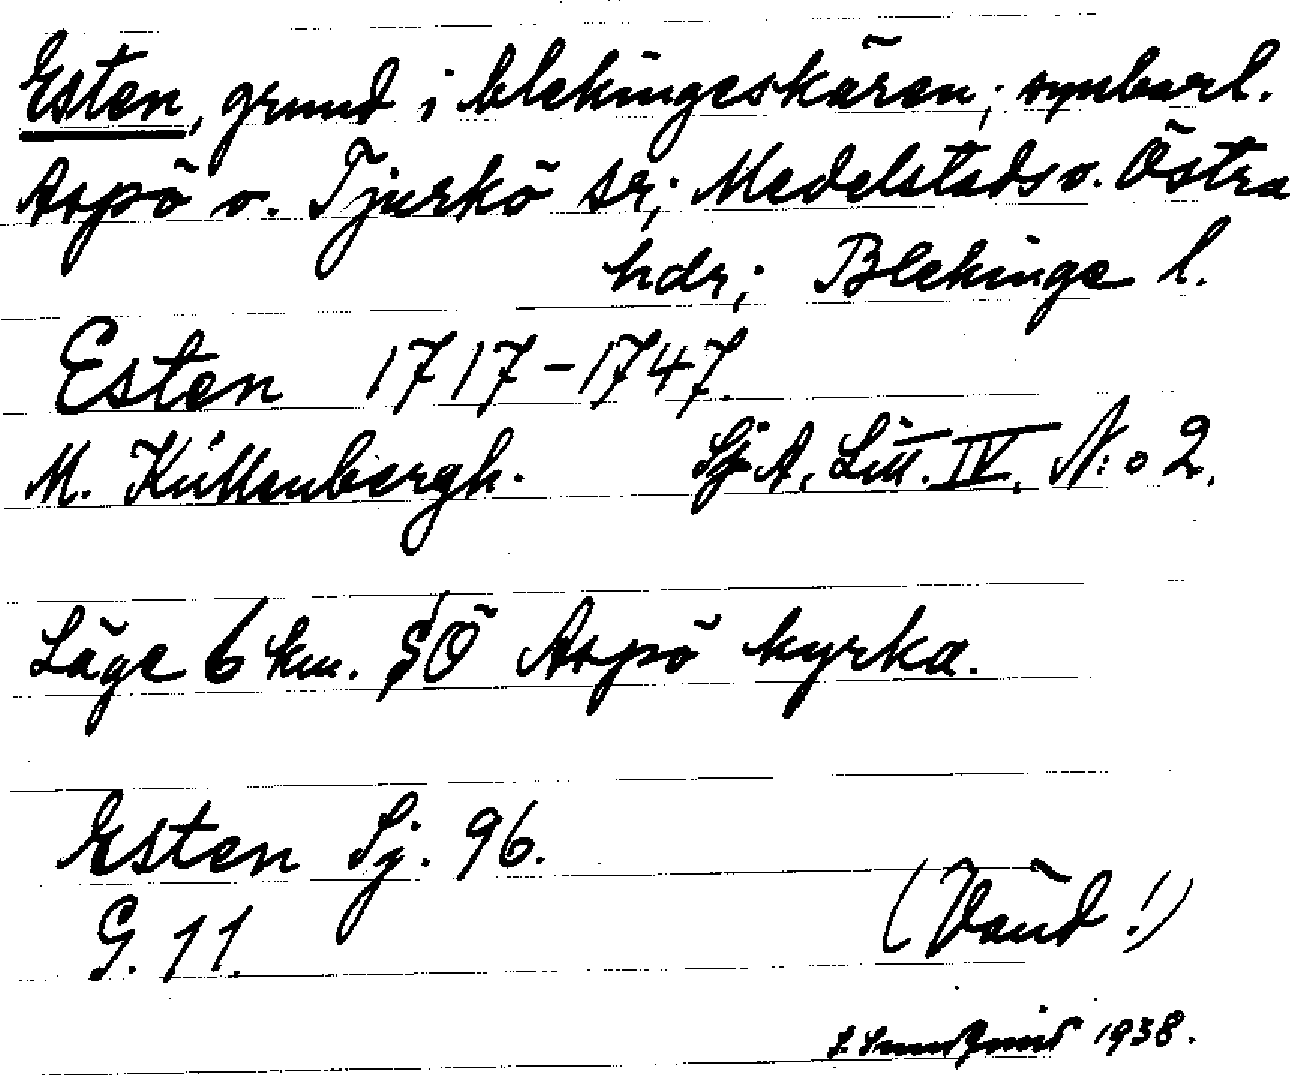 Esten, grund i blekingeskären; synbarl.
Aspö o. Tjurkö sr; Medelstads o. Östra
hdr; Blekinge l.
Esten 1717-1747.
M. Küllenbergh. Sj A. Litt. IV. N:o 2.
Läge 6 km. SÖ Aspö kyrka.
Esten Sj. 96.
G. 11.
(Vänd!)
1938.